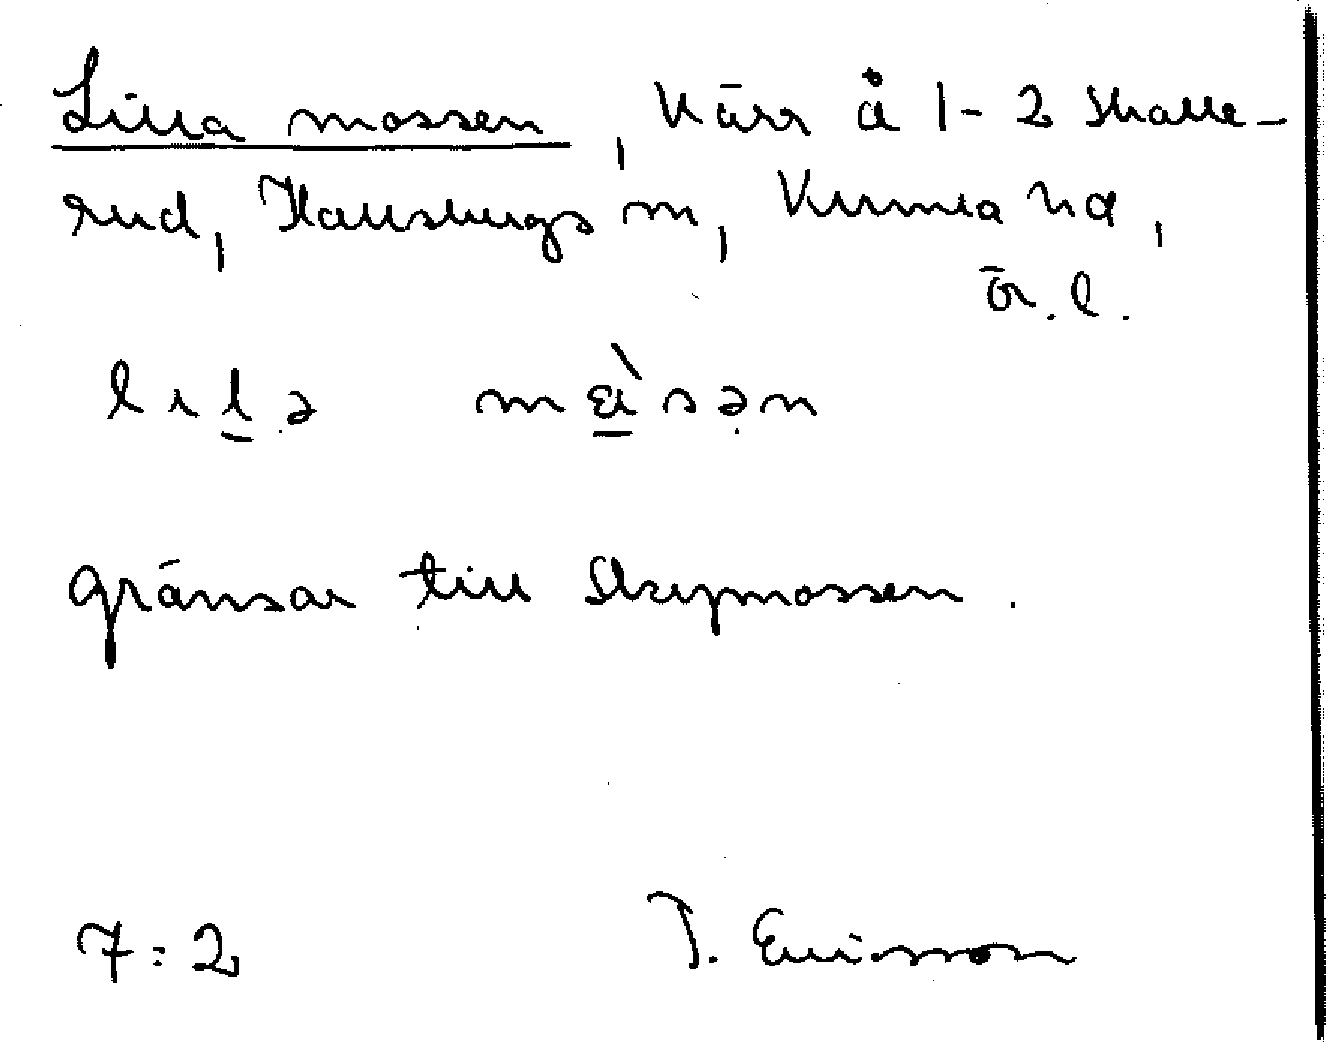 Lilla mossen, Kärr å 1-2 Skalle-
rud, Hallsbergs sn, Kumla hd,
Ör. l.
lɪlə mɑ̀sən
gränsar till Skrymossen.
7:2 J. Ericsson